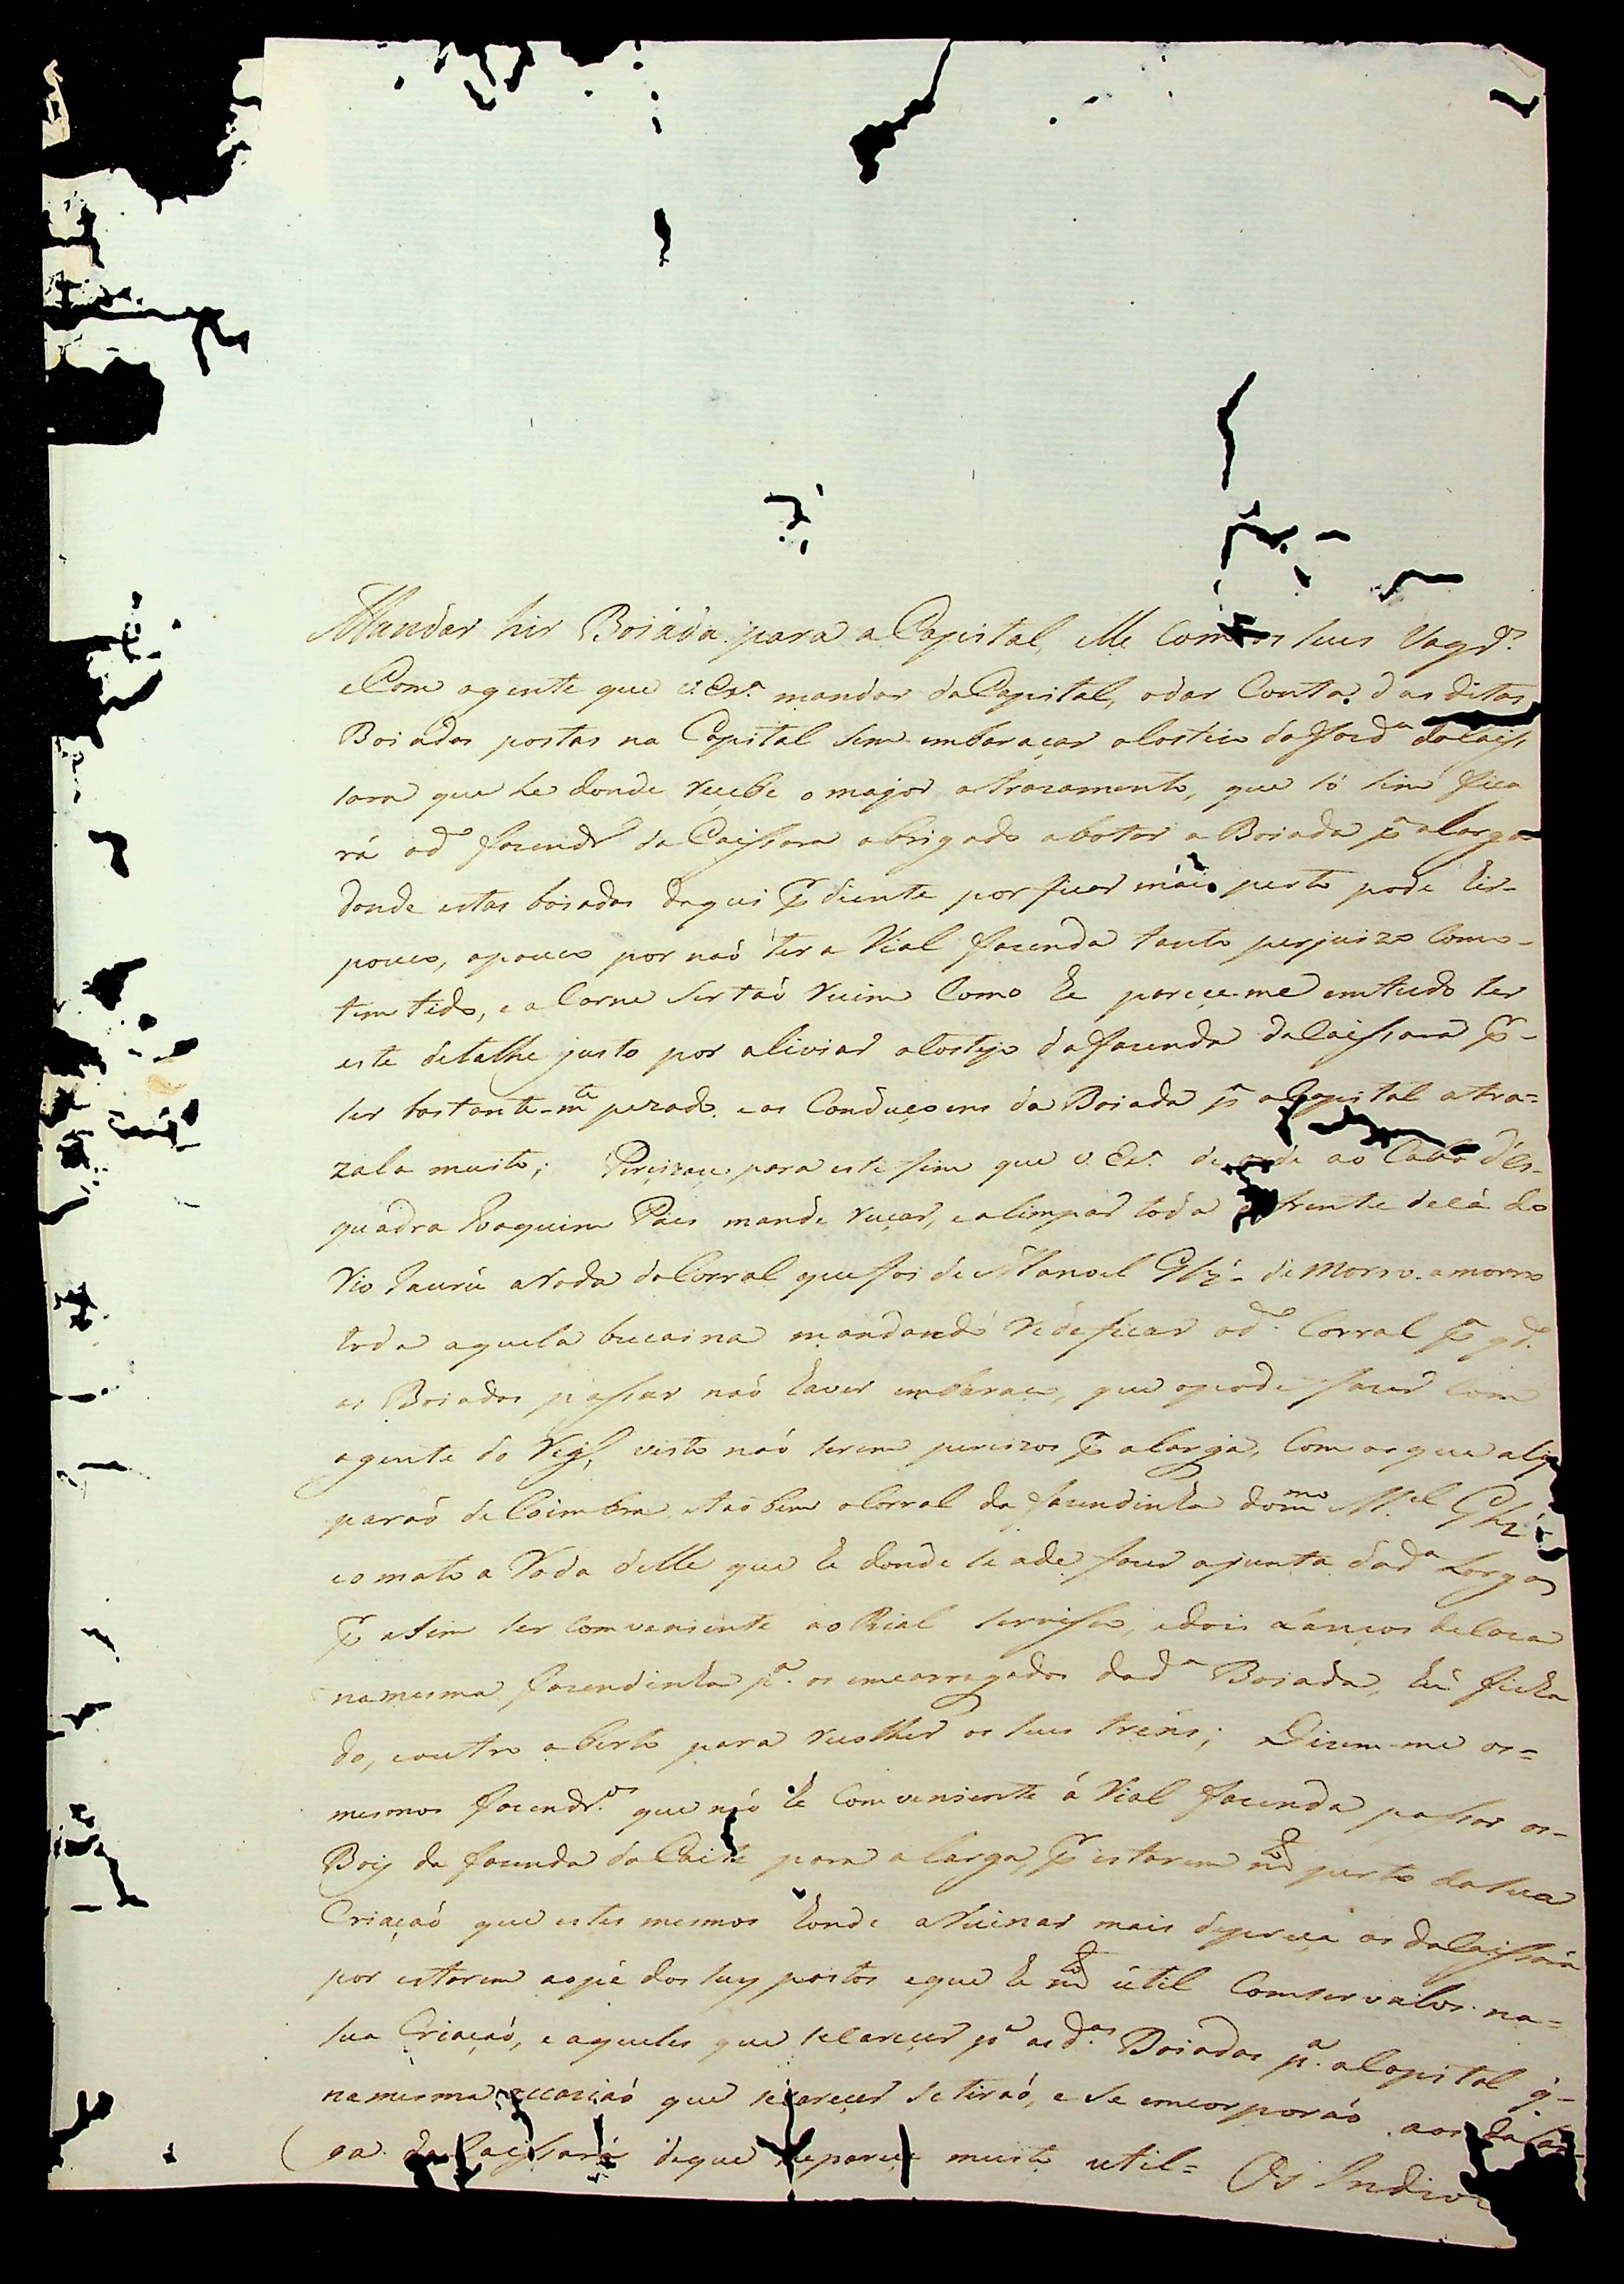 Mandar hir Boiáda para a Capital, elle com os seus Vaqr.os
e Com agente que v. Exa. mandar da Capital, a dar Conta das ditas
Boiadas postas na Capital sem embaraçar o costéio da Fazda da Caiss
sara que he donde recebe o major atrazamento, que só sim fica
rá od.o fazendr.o da Caissara obrigado a botar a Boiada pa. alarga
donde estas boiadas daqui pr diente por ficar máis perto pode hir
pouco, apouco por naó ter a Rial fazenda tanto perjuizo como-
tem tido, e a Carne ser taó ruim como he parece-me emtudo ser
este detalhe justo por aliviar o costejo da fazenda da Caissara pr-
ser bastante-mte pezado, e as Conduçoens da Boiada pa. a Capital atra=
zala muito; Percizase para este fim que v. Exa. de ao Cabo d'Es-
quadra Joaquim Páes mande roçar, e alimpar toda a frente de lá do
Rio Jaurú a roda do Corral que foi de Manoel de Morro. a morro
toda aquela bucaina mandando redeficar od.o Corral pa. qdo.
as Boiadas passar naó haver embaraço, que o pode fazer Com
agente do Regs, visto naó serem percizos pa. alarga, Com os que alim
paraó de Coimbra, e taóbem o Corral da fazendinha do mmo M.el
e o mato a roda delle que he donde se ade fazer ajunta da da. Larga
pr asim ser comveniente ao Rial serviço, e dois ranços de
na mesma fazendinha pa. os emcarregados da da. Boiada, hú ficha
do, e outro aberto para recolher os seus treñs; Dizem-me os=
mesmos fazendr.os que náo hé Comveniente á Rial fazenda passar os-
Bois da fazenda da Caite para alarga, pr estarem mto perto da sua
Criaçaó que estes mesmos honde arruinar mais depreça os da Caissára
por estarem aopé dos seus pastos eque he mto útil Comservalos na=
sua Criaçaó, e aqueles que se Careçer pa. as das. Boiadas pa. a Capital q-
na mesma occaziaó que se Careçer se tiraó, e se emcorporaó aos da
ga da Caissara deque me parece muito util= Os Indios